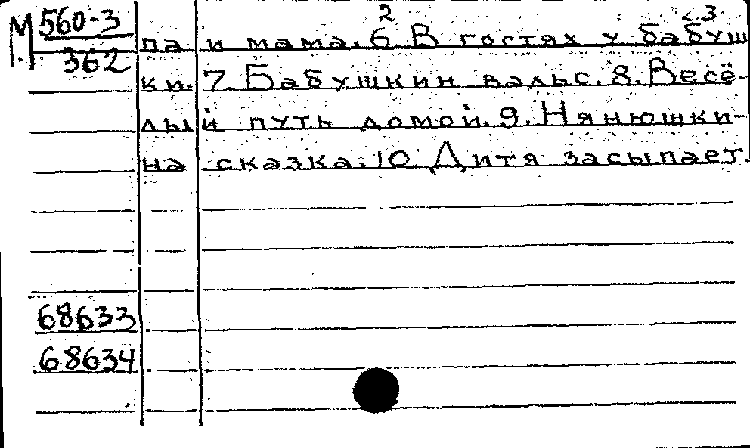 2 3
М 560-3
362
па и мама. 6. В гостях у бабуш
ки. 7. Бабушкин вальс. 8. Весё-
лый путь домой. 9. Нянюшки-
на сказка. 10 Дитя засыпает.
68633
68634